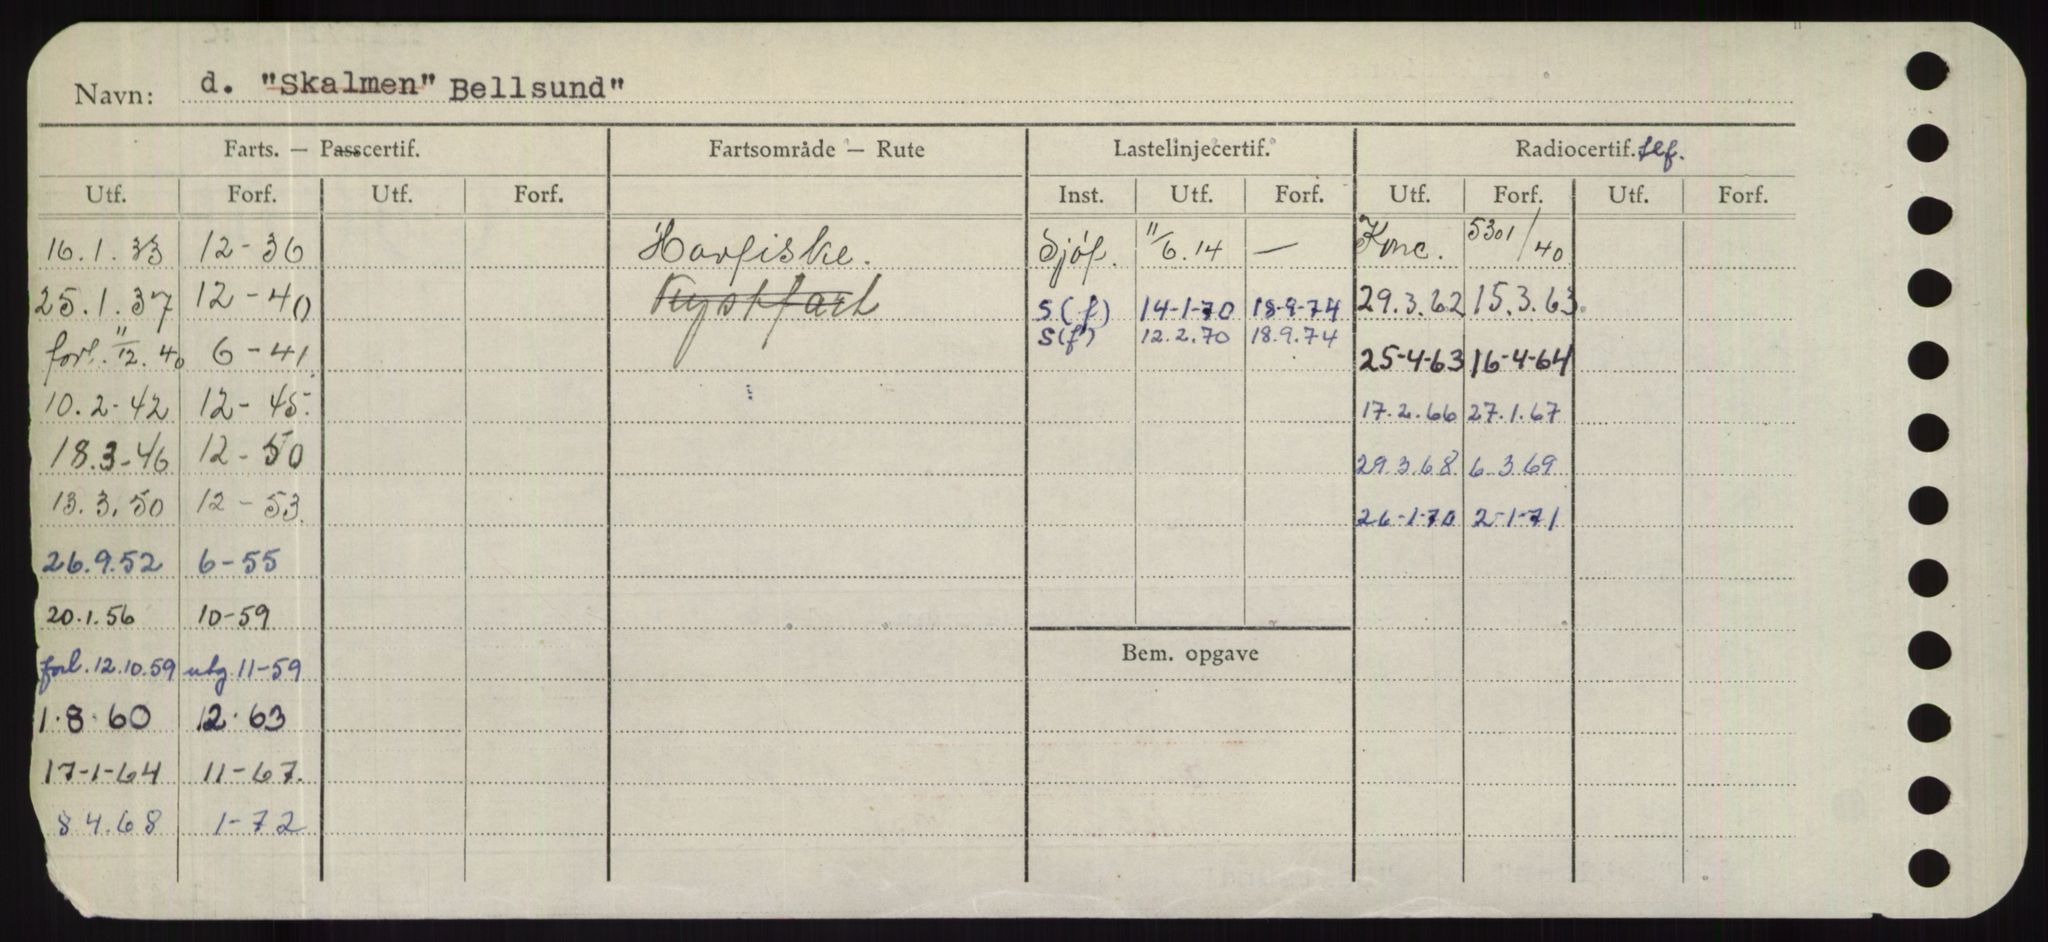 Navn: d. "Skalmen" Bellsund"
Farts. — Passcertif. Fartsområde — Rute Lastelinjecertif. Radiocertif. tlf.
Utf. Forf. Utf. Forf. Inst. Utf. Forf. Utf. Forf. Utf. Forf.
16.1.33 12-36 Havfiske. Sjóf. 11/6.14 — Konc. 5301/40
25.1.37 12-40 Kystfart S(f) 14-1-70 18-9-74 29.3.62 15.3.63.
S(f) 12.2.70 18.9.74
forl. 11/12.40 6-41 25-4-63 16-4-64
10.2-42 12-45. 17.2.66 27.1.67
18.3-46 12-50 29.3.68 6.3.69
13.3.50 12-53. 26-1-70 2-1-71
26.9.52 6-55
20.1.56 10-59
forl. 12.10.59 utg 11-59
Bem. opgave
1.8.60 12.63
17-1-64 11-67.
8 4.68 1-72